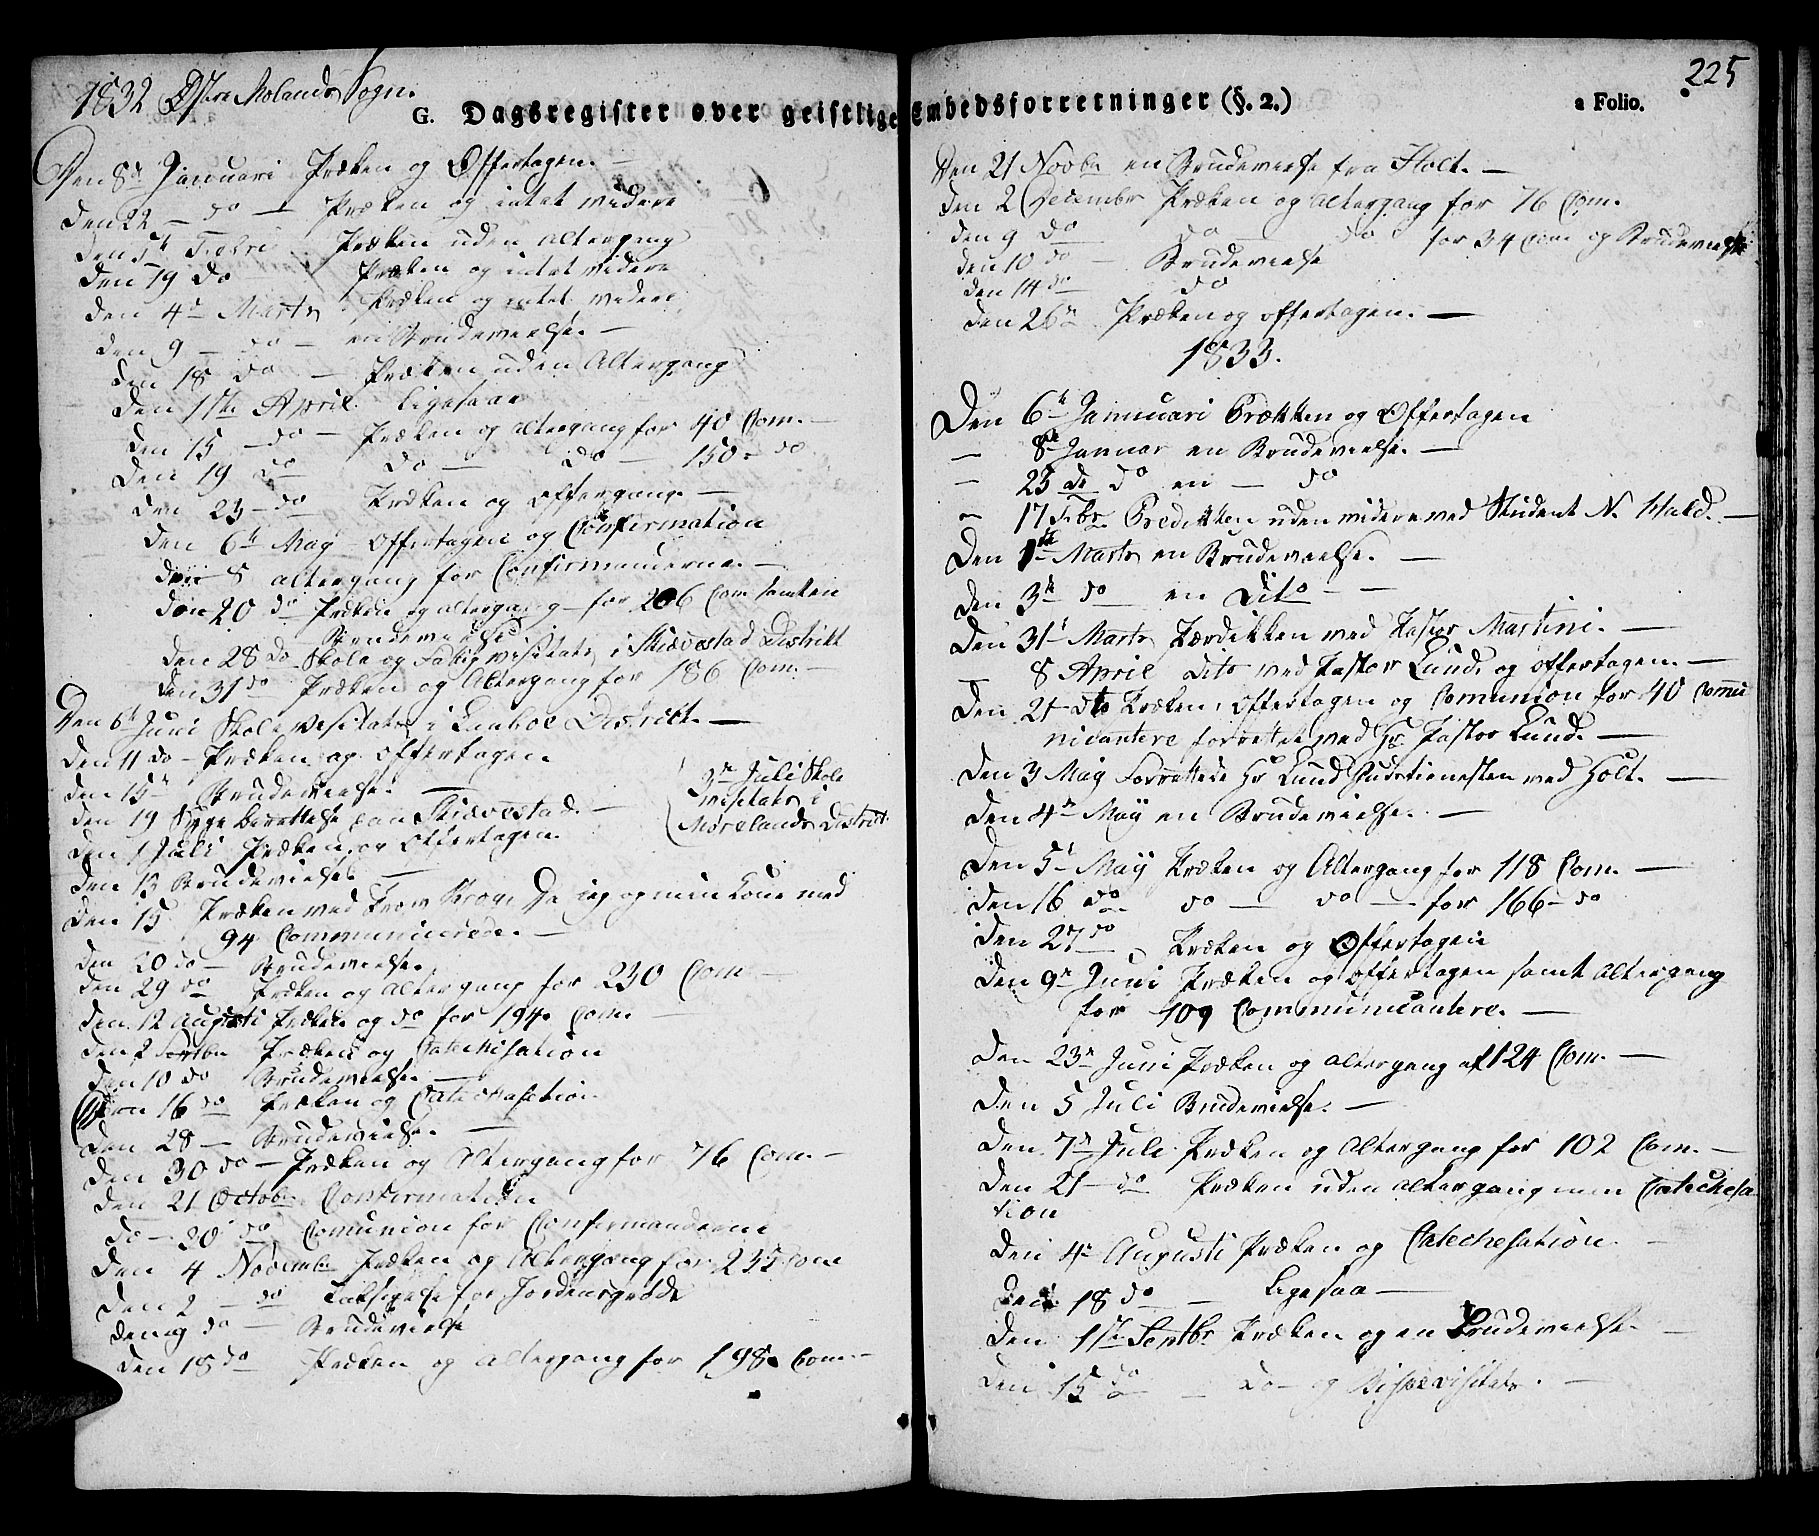 1832 Østre Molands Sogn.
225
G. Dagsregister over geistlige Embedsforretninger (§. 2.)
a Folio.
Den 8de Januari Præken og Offertagen. —
Den 22 — do — Præken og intet videre
Den 5te Febri Præken uden Altergang
Den 19 do Præken og intet videre
Den 4de Marts Præken og intet videre
Den 9 — do — en Brudevielse. —
Den 18 do — Præken uden Altergang
Den 1ste April ligesaa
Den 15 — do — Præken og Altergang for 40 Com. —
Den 19 do do — do — 150. do
Den 23 — do Præken og Offergang. —
Den 6te May Offertagen og Confirmation
Den 8 altergang for Confirmanderne. —
Den 20 do Præken og altergang for 206 Com samt en
Brudevielse
Den 28 do Skole og Fattig visitats i Skiævestad Distrikt
Den 31 do Præken og Altergang for 186 Com. —
Den 6te Juni Skole visitats i Distrikt. —
Den 11 do Præken og Offertagen
Den 15de Brudevielse. —
Den 19 Syge berettelse paa Skiævestad. —
3de Juli Skole
visitats i
Mørelands District
Den 1 Juli Præken og Offertagen.
Den 13 Brudevielse. —
Den 15 Præken ved Krog, Da jeg og min Kone med
94 Communicerede. —
Den 20 do — Brudevielse.
Den 29 do Præken og Altergang for 230 Com —
Den 12 Augusti Præken og do for 194. Com. —
Den 2 Septbr Præken og Catechisation
Den 10 do Brudevielse. —
Den 16 do Præken og Catechisation
Den 28 — Brudevielse. —
Den 30 do — Præken og Altergang for 76 Com. —
Den 21 Octobr Confirmation
do — 30 do Comunion for Confirmanderne
Den 4 Novembr Præken og Altergang for 235 Com
Den 2 — do Taksigelse for Jordens grøde
Den 9 do — Brudevielse
Den 18 do Præken og Altergang for 198. Com. —
Den 21 Novbr en Brudevielse fra Holt. —
Den 2 Decembr Præken og Altergang for 76 Com.
Den 9 do do do for 34 Com og Brudevielse
Den 10 do — Brudevielse
Den 14 do do
Den 26de Præken og offertagen. —
1833.
Den 6te Januari Prækken og Offertagen
— 8de Januar en Brudevielse. —
— 23 de do en — do
— 17 Febr. Predikken uden videre ved Student N. Hald. —
Den 1ste Marts en Brudevielse. —
Den 3de do en Dito — —
Den 31te Marts Prædikken ved Pastor Martini. —
— 8 April Dito ved Pastor Lund og offertagen. —
Den 21 dto Præken, Offertagen og Comunion for 40 Comu
nicantere forrettet ved Hr Pastor Lund. —
Den 3 May Forrettede Hr Lund Gudstienesten ved Holt. —
Den 4de May en Brudevielse. —
Den 5te May Præken og Altergang for 118 Com. —
Den 16 do do — do — for 166 — do
Den 27 do Præken og Offertagen
Den 9de Juni Præken og offertagen samt Altergang
for 109 Communicantere. —
Den 23de Juni Præken og altergang af 124 Com. —
Den 5 Juli Brudevielse. —
Den 7de Juli Præken og Altergang for 102 Com. —
Den 21 — do Præken uden altergang men Catechesa
tion
Den 4de Augusti Præken og Catechesation. —
Den 18 do — ligesaa —
Den 1ste Septbr Præken og en Brudevielse. —
Den 15 do — do — og Bispevisitats. —